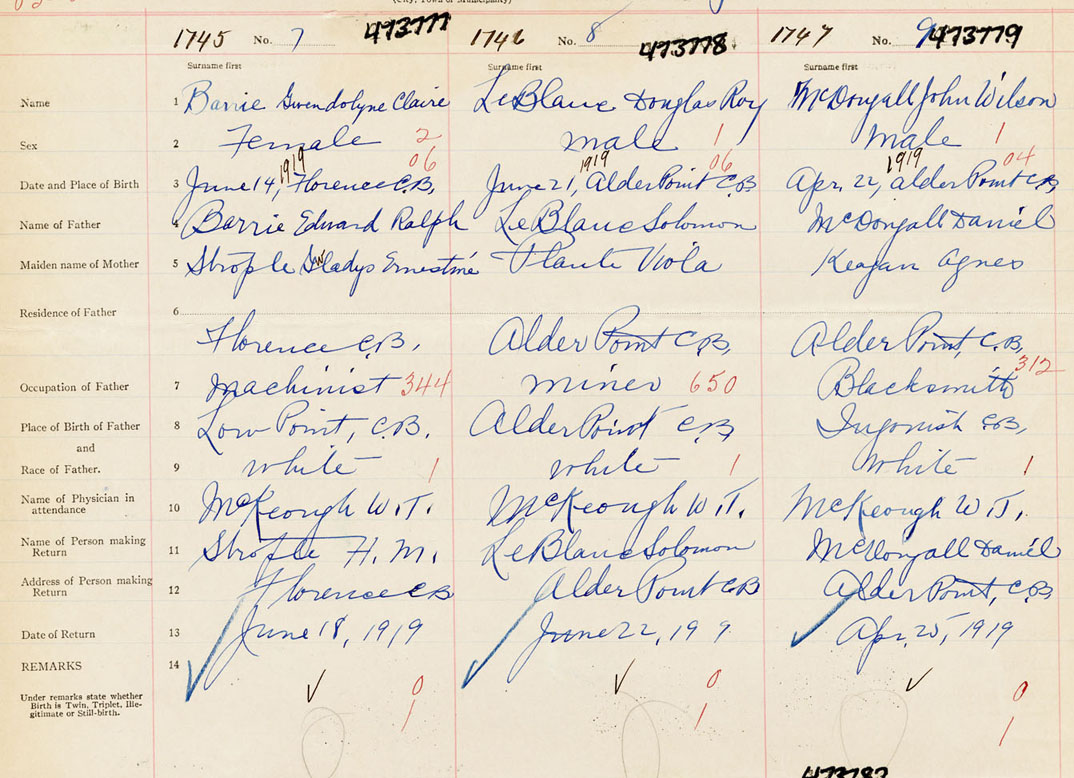 (City, Town or Municipality)
1745 No. 7 473777 1746 No. 8 473778 1747 No. 9 473779
Surname first Surname first Surname first
Name 1 Barrie Gwendolyne Claire LeBlanc Douglas Roy McDougall John Wilson
Sex 2 Female 2 male 1 male 1
1919 06 1919 06 1919 04
Date and Place of Birth 3 June 14, Florence C.B. June 21, Alder Point C.B. Apr. 22, Alder Point C.B.
Name of Father 4 Barrie Edward Ralph LeBlanc Solomon McDougall Daniel
Maiden name of Mother 5 Strople Gladys Ernestine Plante Viola Keagan Agnes
Residence of Father 6
Florence C.B. Alder Point C.B. Alder Point, C.B.
Occupation of Father 7 Machinist 344 miner 650 Blacksmith 312
Place of Birth of Father 8 Low Point, C.B. Alder Point C.B. Ingonish C.B.
and
Race of Father. 9 white 1 white 1 White 1
Name of Physician in
attendance 10 McKeough W.T. McKeough W.T. McKeough W.T.
Name of Person making
Return 11 Strople H.M. LeBlanc Solomon McDougall Daniel
Address of Person making
Return 12 Florence C.B. Alder Point C.B. Alder Point, C.B.
Date of Return 13 June 18, 1919 June 22, 19 9. Apr. 25, 1919
REMARKS 14
Under remarks state whether
Birth is Twin, Triplet, Ille-
gitimate or Still-birth.
0 0 0
1 1 1